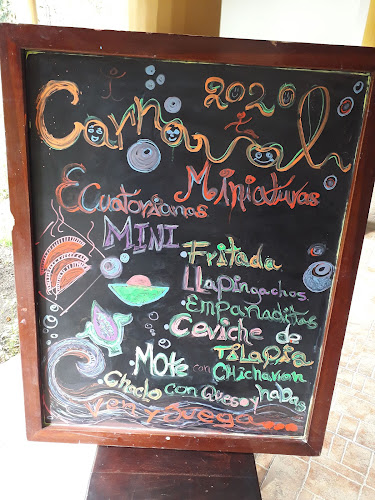 ¡Carnaval 2020!
Ecuatorianas Miniaturas
MINI
·Fritada
Llapingachos
·Empanaditas
·Ceviche de
TILAPIA
·Mote con CHicharrón
·Choclo con Queso y habas
Ven y Juega...